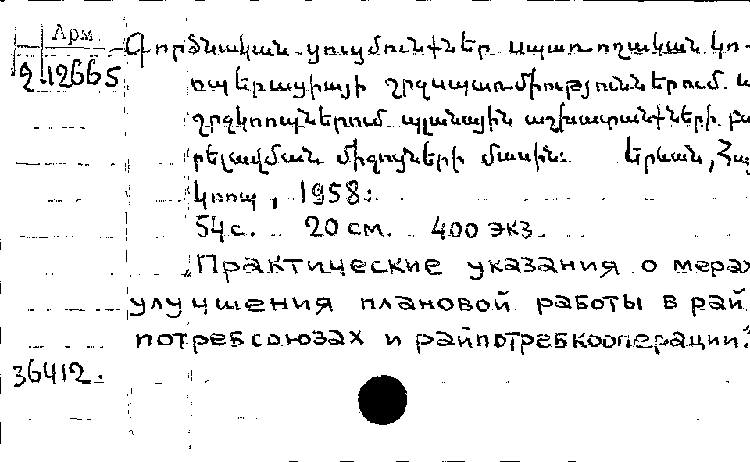 Арм.
2 12665
Գործնական ցուցմունքներ սպառողական կո-
ոպերացիայի շրջսպառմիություններում և
շրջկոոպներում պլանային աշխատանքների բա
րելավման միջոցների մասին: Երևան, Հայ
կոոպ, 1958:
54 с. 20 см. 400 экз.
Практические указания о мерах
улучшения плановой работы в рай
потребсоюзах и райпотребкооперации.
36412.